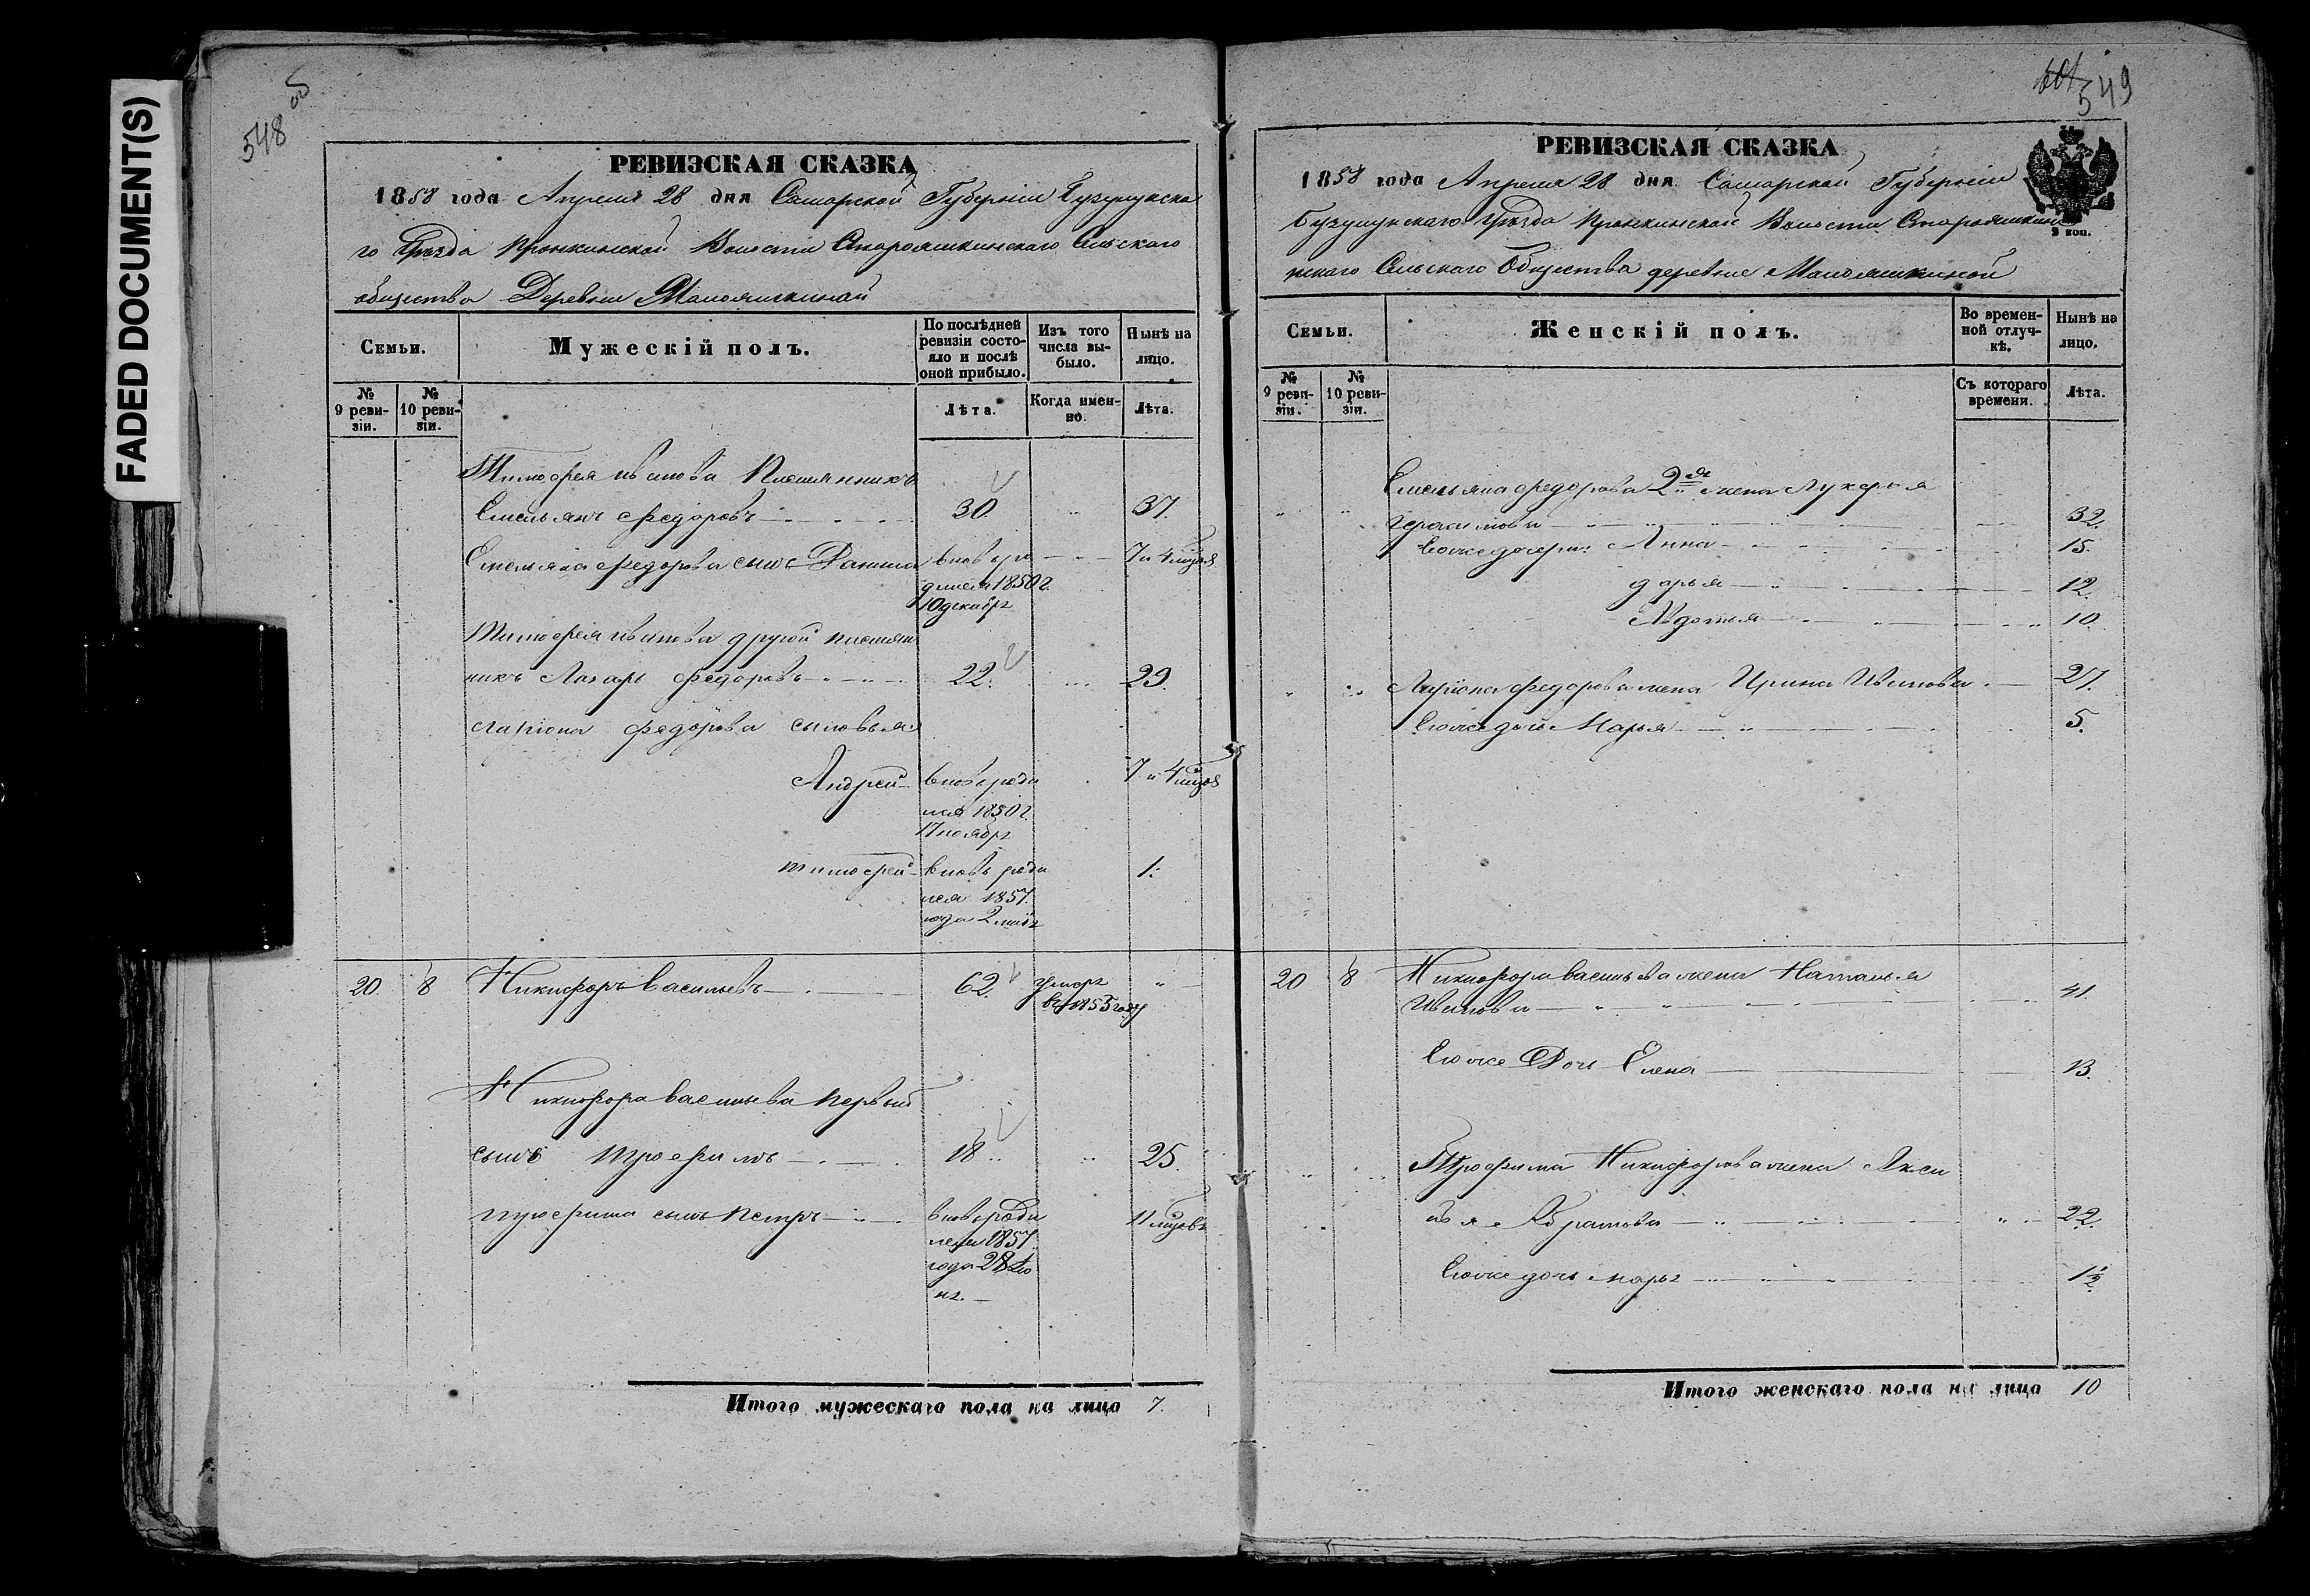 FADED DOCUMENT(S)
548
РЕВИЗСКАЯ СКАЗКА
1858 года Апреля 28 дня Самарской Губернiи Бузулукска
го Уѣзда Пронкинской Волости Старояшкинскаго Сельскаго
общества Деревни Малояшкиной
Семьи.
Мужескiй полъ.
По послѣдней ревизiи состо-
яло и послѣ
оной прибыло.
Изъ того
числа вы-
было.
Нынѣ на
лицо.
№
9 реви-
зiи.
№
10 реви-
зiи.
Лѣта.
Когда имен-
но.
Лѣта.
Тимофея Иванова Племянникъ
Емельянъ Федоровъ 30. 37.
Емельяна Федорова сынъ Данила вновь ро 7 и 4 мѣцов
дился 1850 г.
10 декабр
Тимофея Иванова другой племян
никъ Лазарь Федоровъ 22. 29.
Лариона Федорова сыновья
Андрей вновь роди 7 и 4 мѣцов
лся 1850 г.
17 ноябр
Тимофей вновь роди 1.
лся 1857.
года 2 маiя
20. 8 Никифоръ Васильевъ 62. умеръ
въ 1853 году
Никифора Васильева первый
сынъ Трофимъ 18 25.
Трофима сынъ Петръ вновь роди 11 мѣцовъ
лся 1857.
года 28 Iю
нг.
Итого мужескаго пола на лицо 7.
549
РЕВИЗСКАЯ СКАЗКА
1858 года Апреля 28 дня Самарской Губернiи
Бузулунскаго Уѣзда Пронкинской Волости Старояшкин
скаго Сельскаго Общества деревне Малояшкиной
3 коп.
Семьи.
Женскiй полъ.
Во времен-
ной отлуч-
кѣ.
Нынѣ на
лицо.
№
9 реви-
зiи.
№
10 реви-
зiи.
Съ котораго
времени.
Лѣта.
Емельяна Федорова 2я жена Лукерья
Герасимова 32.
Егоже дочери: Анна 15.
Дарья 12.
Авдотья 10.
Лариона Федорова жена Ирина Иванова 27.
Егоже дочь Марья 5.
20 8 Никифора Васильева жена Наталья
Иванова 41.
Егоже Дочь Елена 13.
Трофима Никифорова жена Акси
нья Абрамова 22.
Егоже дочь Марья 1½
Итого женскаго пола на лицо 10